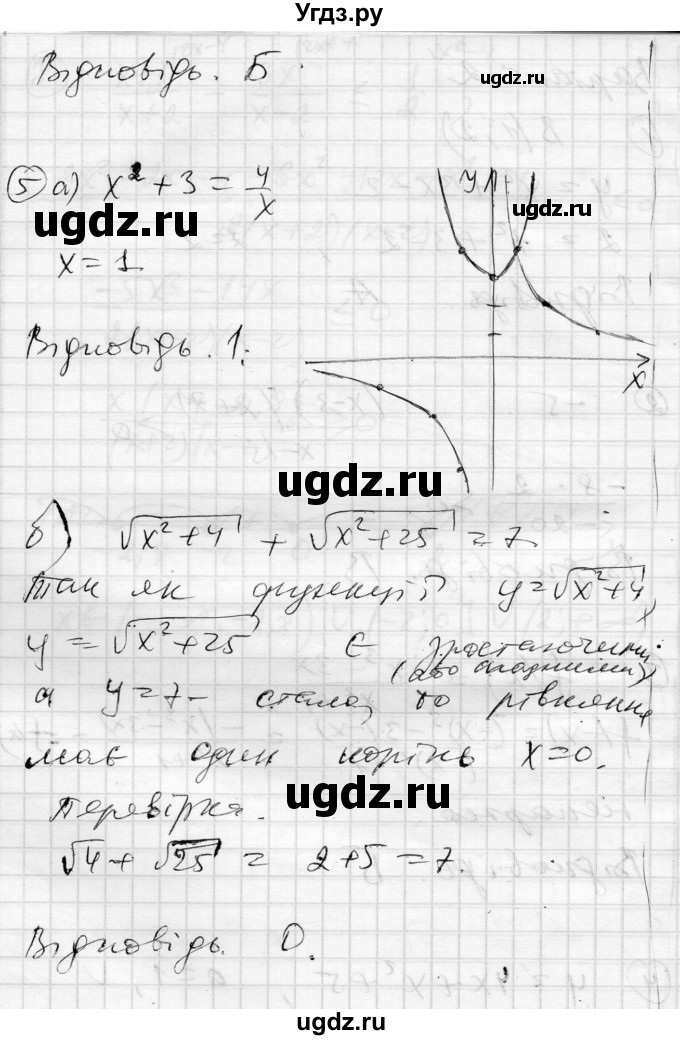 Угдз.ру
Відповідь. Б.
ugdz.ru
⑤ а) x² + 3 = 4/x
y
ugdz.ru
ugdz.ru
x = 1
Відповідь. 1.
x
ugdz.ru
б) √(x²+4) + √(x²+25) = 7
Так як функції y=√(x²+4),
y = √(x²+25) є зростаючими
(або спадними),
ugdz.ru
а y=7 - стала, то рівняння
має один корінь x=0.
ugdz.ru
Перевірка.
√4 + √25 = 2+5=7.
ugdz.ru
Відповідь. 0.
ugdz.ru